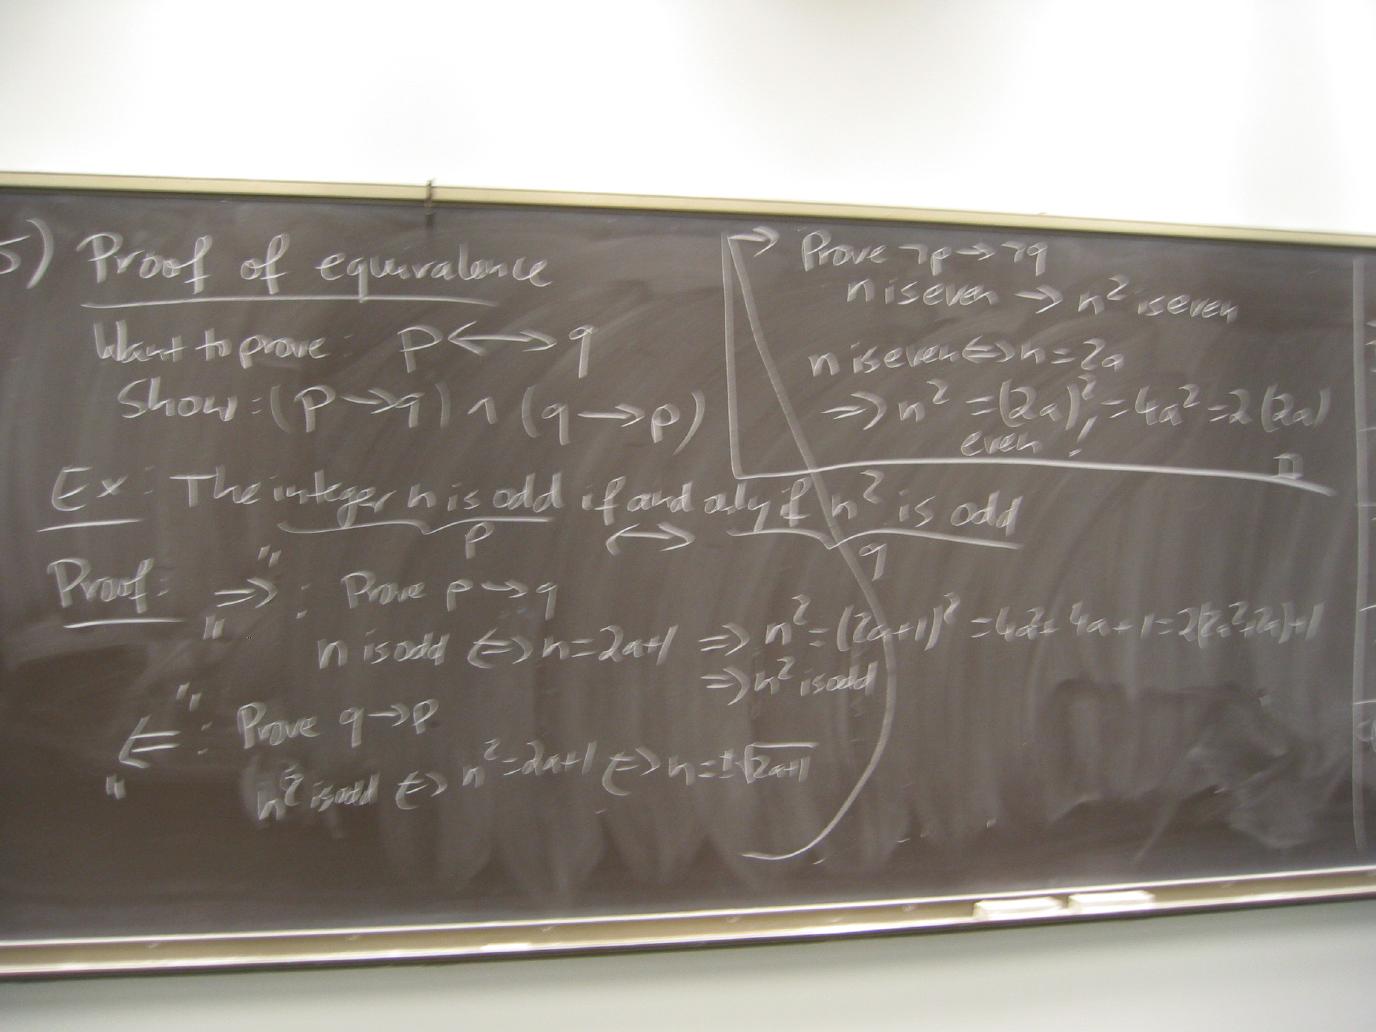 5) Proof of equivalence
Want to prove: p ↔ q
Show: (p → q) ∧ (q → p)
Ex: The integer n is odd if and only if n² is odd
p ↔ q
Proof: "⇒": Prove p → q
n is odd ⇔ n = 2a+1 ⇒ n² = (2a+1)² = 4a² + 4a + 1 = 2(2a²+2a)+1
⇒ n² is odd
"⇐": Prove q → p
n² is odd ⇔ n² = 2a+1 ⇔ n = ±√2a+1
Prove ¬p → ¬q
n is even → n² is even
n is even ⇔ n = 2a
⇒ n² = (2a)² = 4a² = 2(2a)
even!